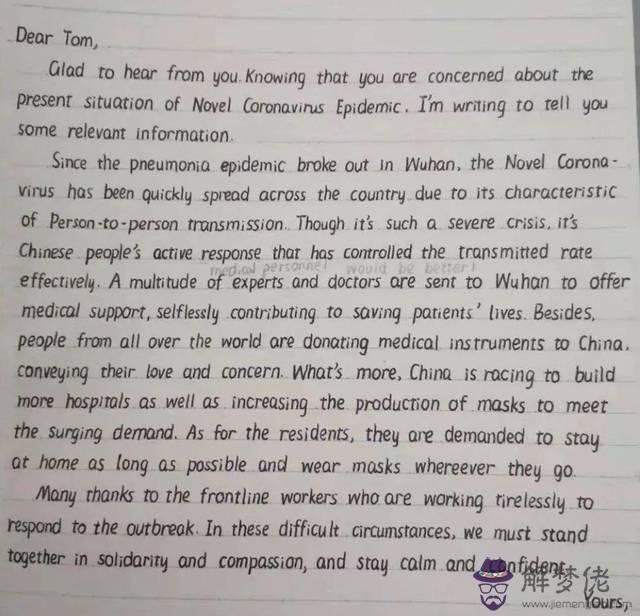 Dear Tom,
Glad to hear from you. Knowing that you are concerned about the
present situation of Novel Coronavirus Epidemic, I'm writing to tell you
some relevant information.
Since the pneumonia epidemic broke out in Wuhan, the Novel Corona-
virus has been quickly spread across the country due to its characteristic
of Person-to-person transmission. Though it's such a severe crisis, it's
Chinese people's active response that has controlled the transmitted rate
medical personnel would be better!
effectively. A multitude of experts and doctors are sent to Wuhan to offer
medical support, selflessly contributing to saving patients' lives. Besides,
people from all over the world are donating medical instruments to China,
conveying their love and concern. What's more, China is racing to build
more hospitals as well as increasing the production of masks to meet
the surging demand. As for the residents, they are demanded to stay
at home as long as possible and wear masks whereever they go.
Many thanks to the frontline workers who are working tirelessly to
respond to the outbreak. In these difficult circumstances, we must stand
together in solidarity and compassion, and stay calm and confident.
解梦佬
www.jiemeng
Yours,